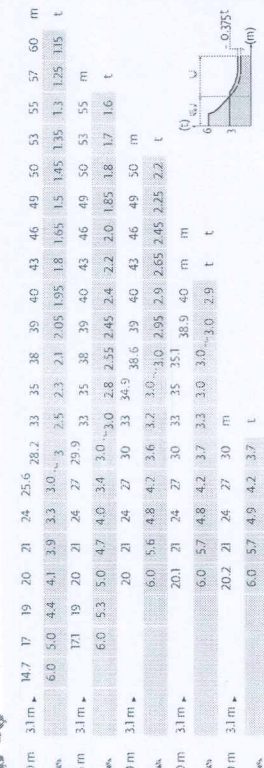 m 3.1 m ► 14.7 17 19 20 21 24 25.6 28.2 33 35 38 39 40 43 46 49 50 53 55 57 60 m
6.0 5.0 4.4 4.1 3.9 3.3 3.0 3 2.5 2.3 2.1 2.05 1.95 1.8 1.65 1.5 1.45 1.35 1.3 1.25 1.15 t
m 3.1 m ► 17.1 19 20 21 24 27 29.9 33 35 38 39 40 43 46 49 50 53 55 m
6.0 5.3 5.0 4.7 4.0 3.4 3.0 3.0 2.8 2.55 2.45 2.4 2.2 2.0 1.85 1.8 1.7 1.6 t
m 3.1 m ► 20 21 24 27 30 33 34.9 38.6 39 40 43 46 49 50 m
6.0 5.6 4.8 4.2 3.6 3.2 3.0 3.0 2.95 2.9 2.65 2.45 2.25 2.2 t
m 3.1 m ► 20.1 21 24 27 30 33 35 35.1 38.9 40 m
6.0 5.7 4.8 4.2 3.7 3.3 3.0 3.0 3.0 2.9 t
m 3.1 m ► 20.2 21 24 27 30 m
6.0 5.7 4.9 4.2 3.7 t
(t)
6
3
- 0.375 t
(m)